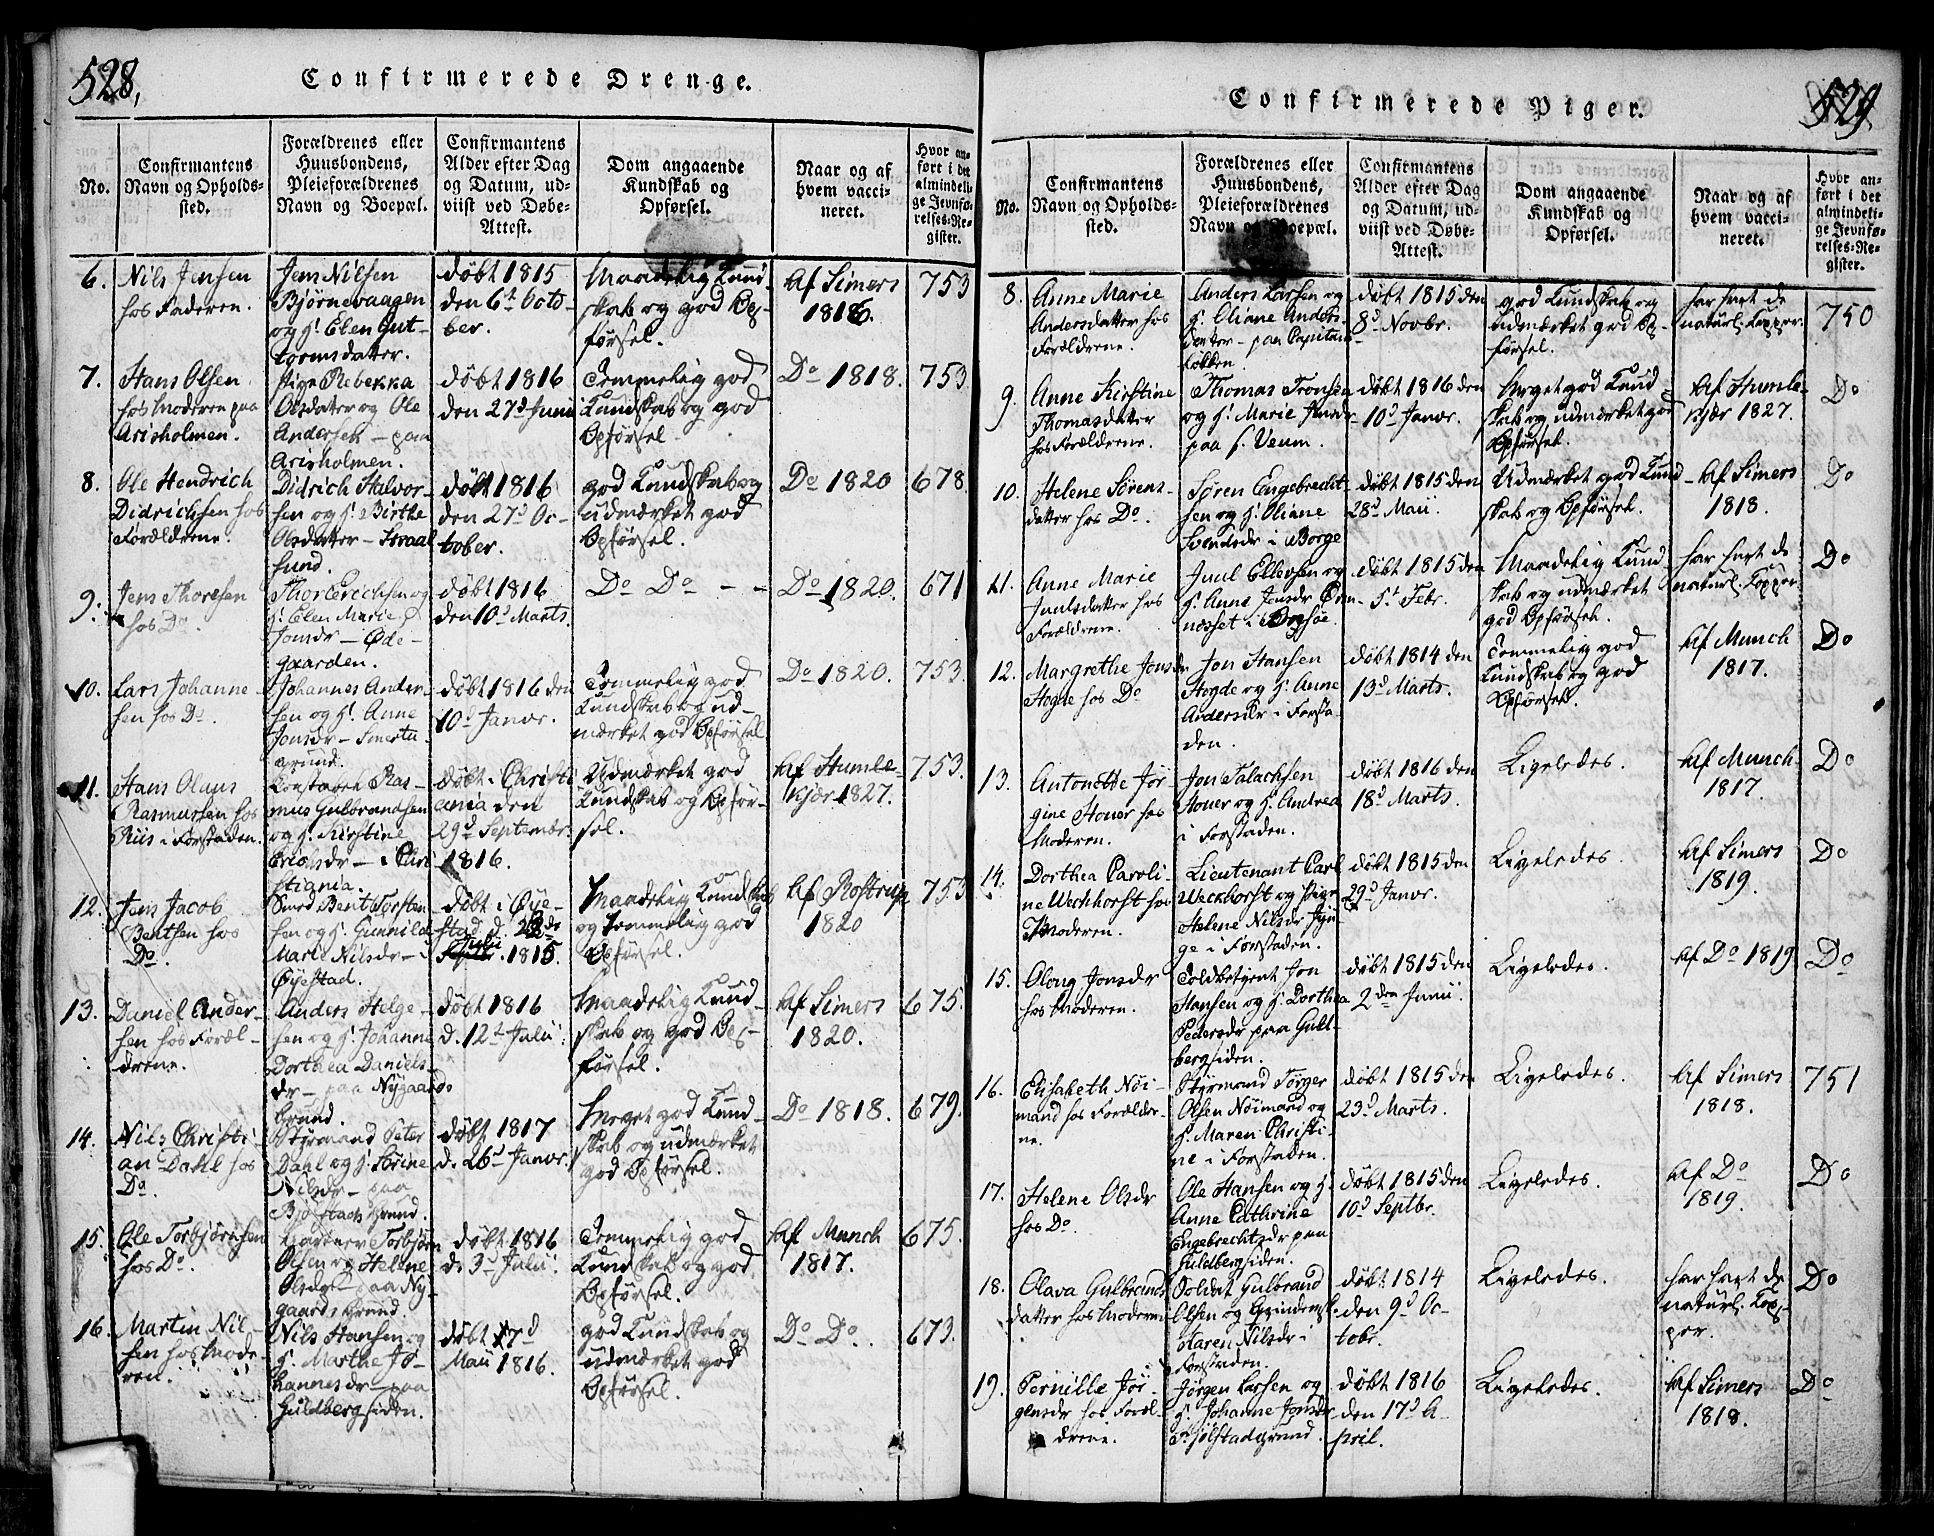 528,
Confirmerede Drenge.
No.
Confirmantens
Navn og Opholds-
sted.
Forældrenes eller
Huusbondens,
Pleieforældrenes
Navn og Boepæl.
Confirmantens
Alder efter Dag
og Datum, ud-
viist ved Døbe-
Attest.
Dom angaaende
Kundskab og
Opførsel.
Naar og af
hvem vacci-
neret.
Hvor an-
ført i det
almindeli-
ge Jevnfø-
relses-Re-
gister.
6.
Nils Jensen
hos Faderen.
Jens Nilsen
Bjørnevaagen
og h. Elen Gut-
tormsdatter.
döbt 1815
den 6t Octo
ber.
Maadelig Kund-
skab og god Op-
førsel.
Af Simers
1816.
753
7.
Hans Olsen
hos Moderen paa
Arisholmen.
Pige Rebekka
Olsdatter og Ole
Andersen - paa
Arisholmen.
döbt 1816
den 27d Junii
Temmelig god
Kundskab og god
Opførsel.
Do 1818.
753.
8.
Ole Hendrich
Didrichsen hos
Forældrene.
Didrich Halvor-
sen og h. Birthe
Olsdatter -
sund.
döbt 1816
den 27d Oc-
tober.
god Kundskab og
udmærket god
Opførsel.
Do 1820
678.
9.
Jens Thoresen
hos Do.
Thor Erichsen og
h. Elen Marie
Jonsdr - Øde-
gaarden.
döbt 1816
den 10d Marts
Do Do - -
Do 1820.
671
10.
Lars Johanne-
sen hos Do.
Johannes Ander-
sen og h. Anne
Jonsdr - Smertu-
grund.
döbt 1816 den
10d Janvr.
Temmelig god
Kundskab og ud-
mærket god Opförsel
Do 1820.
753.
11.
Hans Olaus
Rasmussen hos
Riis i Forstaden.
Constabel Ras-
mus Gulbrandsen
og h. Kirstine
Erichsdr - i Chri
stiania.
döbt i Christi
ania den
29d Septembr.
1816.
Udmærket god
Kundskab og Opför-
sel.
Af Humle-
kjær 1827.
753.
12.
Jens Jacob
Bentsen hos
Do.
Smed Bent Torsten-
sen og h. Gunnild
Marie Nilsdr - i
Öyestad.
döbt i Öye-
stad d. 28de
Julii 1815.
Maadelig Kundskab
og Temmelig god
Opførsel.
Af Rostrup
1820
753
13.
Daniel Ander-
sen hos Foræl-
drene.
Anders Helge-
sen og h. Johanne
Dorthea Daniels-
dr - paa Nygaards
Grund.
döbt 1816
d. 12t Julii.
Maadelig Kund-
skab og god Op-
førsel.
Af Simers
1820.
675.
14.
Nils Christi-
an Dahl hos
Do.
Styrmand Peter
Dahl og h. Sörine
Nilsdr - paa
Bjøstads Grund.
döbt 1817
d. 26d Janvr.
Meget god Kund-
skab og udmærket
god Opførsel.
Do 1818.
679.
15.
Ole Torbjörnsen
hos Do.
Torbjørn
Olsen og Helene
Olsdr - paa Ny-
gaards Grund.
döbt 1816
d. 3d Julii.
Temmelig god
Kundskab og god
Opførsel.
Af Munch
1817.
675.
16.
Martin Nil-
sen hos Mode-
ren.
Nils Hansen og
h. Marthe Jo-
hannesdr - paa
Guldbergsiden.
döbt 17d
Maii 1816.
god Kundskab og
udmærket god
Opførsel.
Do Do.
673.
529.
Confirmerede Piger.
No.
Confirmantens
Navn og Opholds-
sted.
Forældrenes eller
Huusbondens,
Pleieforældrenes
Navn og Boepæl.
Confirmantens
Alder efter Dag
og Datum, ud-
viist ved Døbe-
Attest.
Dom angaaende
Kundskab og
Opførsel.
Naar og af
hvem vacci-
neret.
Hvor an-
ført i det
almindeli-
ge Jevnfø-
relses-Re-
gister.
8.
Anne Marie
Andersdatter hos
Forældrene.
Anders Larsen og
h. Oliane Anders-
datter - paa Capitain-
løkken.
døbt 1815 den
8d Novbr.
god Kundskab og
udmærket god Op-
førsel.
har havt de
naturl. Kopper.
750
9.
Anne Kirstine
Thomasdatter
hos Forældrene.
Thomas Tronsen
og h. Marie Jansdr
paa h. Veum.
døbt 1816 den
10d Janvr.
Meget god Kund-
skab og udmærket god
Opførsel.
Af Humle-
kjær 1827.
Do
10.
Helene Sörens-
datter hos Do.
Søren Engebrecht-
sen og h. Oliane
Svendsdr i Borge
døbt 1815 den
28d Maii.
Udmærket god Kund-
skab og Opførsel.
Af Simers
1818.
Do
11.
Anne Marie
Juulsdatter hos
Forældrene.
Juul Ellevsen og
h. Anne Jensdr
næsset i Tromsøe.
døbt 1815 den
5t Febr.
Maadelig Kund-
skab og udmærket
god Opførsel.
har havt de
naturl. Kopper.
Do
12.
Margrethe Jonsdr
Hogde hos Do
Jon Hansen
Hogde og h. Anne
Andersdr i Forsta-
den.
døbt 1814 den
13d Marts.
Temmelig god
Kundskab og god
Opførsel.
Af Munch
1817.
Do
13.
Antonette Jör-
gine Houer hos
Moderen.
Jon Salachsen
Houer og h. Andrea
i Forstaden.
døbt 1816 den
18d Marts.
Ligeledes.
Af Munch
1817.
Do
14.
Dorthea Caroli-
ne Weckhorst hos
Moderen.
Lieutenant Carl
Weckhorst og Pige
Helene Nilsdr
i Forstaden.
døbt 1815 den
29d Janvr.
Ligeledes.
Af Simers
1819.
Do
15.
Aloug Jonsdr
hos Moderen.
Toldbetjent Jon
Hansen og h. Dorthea
Pedersdr paa Guld-
bergsiden.
døbt 1815 den
2den Junii.
Ligeledes.
Af Do 1819
Do
16.
Elisabeth Nöi-
mand hos Forældre-
ne.
Styrmand Törger
Olsen Nöimand og
h. Maren Christi-
ne i Forstaden.
døbt 1815 den
23d Marts.
Ligeledes.
Af Simers
1818.
751
17.
Helene Olsdr
hos Do
Ole Hansen og h.
Anne Cathrine
Engebrechtsdr paa
Guldbergsiden.
døbt 1815 den
10d Septbr.
Ligeledes.
Af Do
1819.
Do
18.
Olava Gulbrands
datter hos Moderen
Soldat Gulbrand
Olsen og Qvindemsk.
Karen Nilsdr i
Forstaden.
døbt 1814
den 9d Oc-
tobr.
Ligeledes.
har havt de
naturl. Kop-
per.
Do
19.
Pernille Jör-
gensdr hos Foræl-
drene.
Jörgen Larsen og
h. Johanne Jonsdr
døbt 1816
den 17d A-
pril.
Ligeledes.
Af Simers
1818.
Do